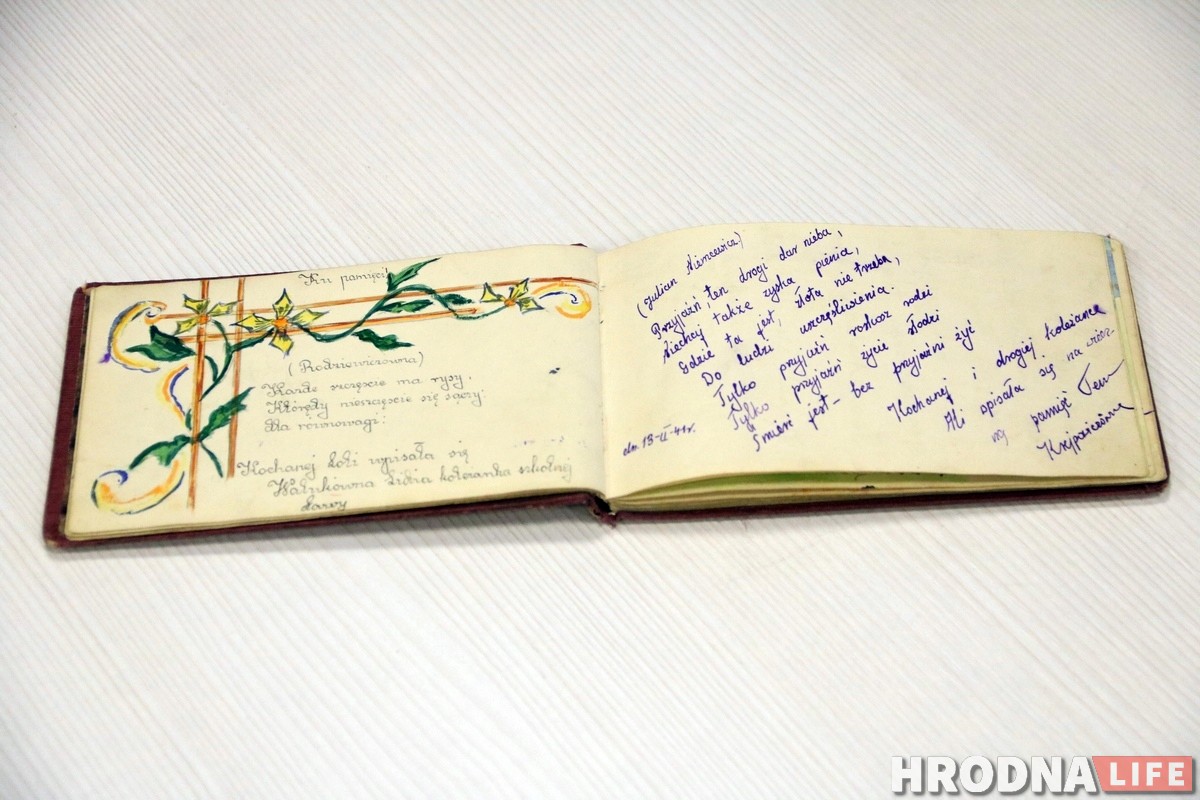 Ku pamięci!
(Rodziewiczówna)
Każde szczęście ma rysy,
Którędy nieszczęście się sączy
dla równowagi!
Kochanej
wpisała się
Lidia koleżanka szkolnej
ławy
(Julian Niemcewicz)
Przyjaźń, ten drogi dar nieba,
Niechaj także zyska pienia,
Gdzie ta jest, złota nie trzeba,
Do ludzi uszczęśliwienia.
Tylko przyjaźń rozkosz rodzi
Tylko przyjaźń życie słodzi
Śmierć jest - bez przyjaźni żyć
Kochanej i drogiej koleżance
Ali wpisała się na wiecz-
ną pamięć
dn. 13-II-41r.
HRODNA LIFE